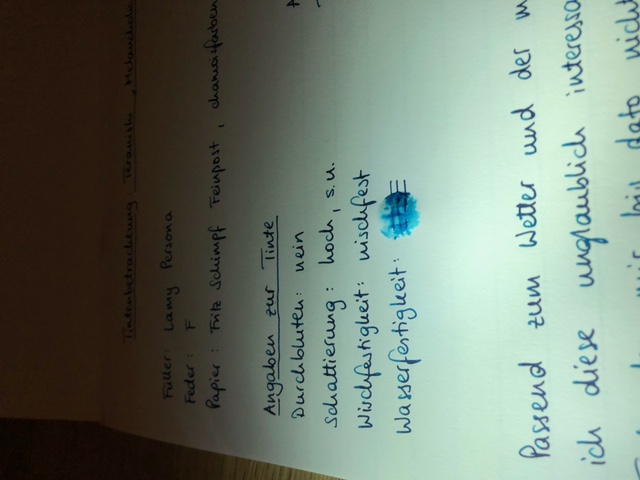 Tintenbetrachtung Teranishi, Melancholic
Füller: Lamy Persona
Feder: F
Papier: Fritz Schimpf Feinpost, chamoisfarben
Angaben zur Tinte
Durchbluten: nein
Schattierung: hoch, s.u.
Wischfestigkeit: wischfest
Wasserfestigkeit:
Passend zum Wetter und der
ich diese unglaublich interessa
bis dato nicht